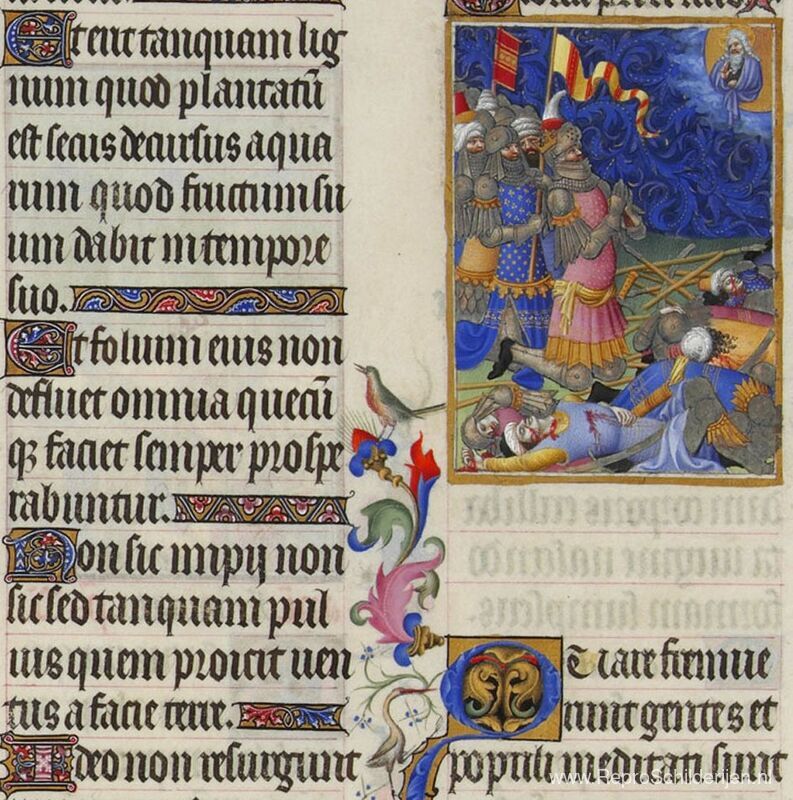 Et erit tanquam lig
num quod plantatū
est secus decursus aqua
rum quod fructum su
um dabit in tempore
suo.
Et folium eius non
defluet omnia quecū
qꝫ faciet semper prospe
rabuntur.
Non sic impij non
sic sed tanquam pul
uis quem proicit uen
tus a facie terre.
Ideo non resurgunt
Quare fremue
runt gentes et
populi meditati sunt
www.ReproSchilderijen.nl